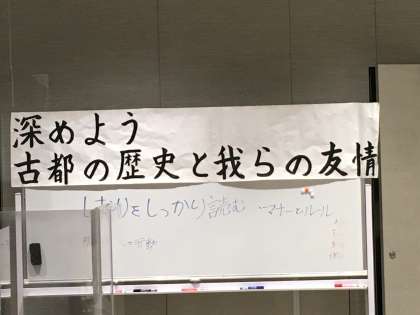 深めよう
古都の歴史と我らの友情
しおりをしっかり読む マナーとルール